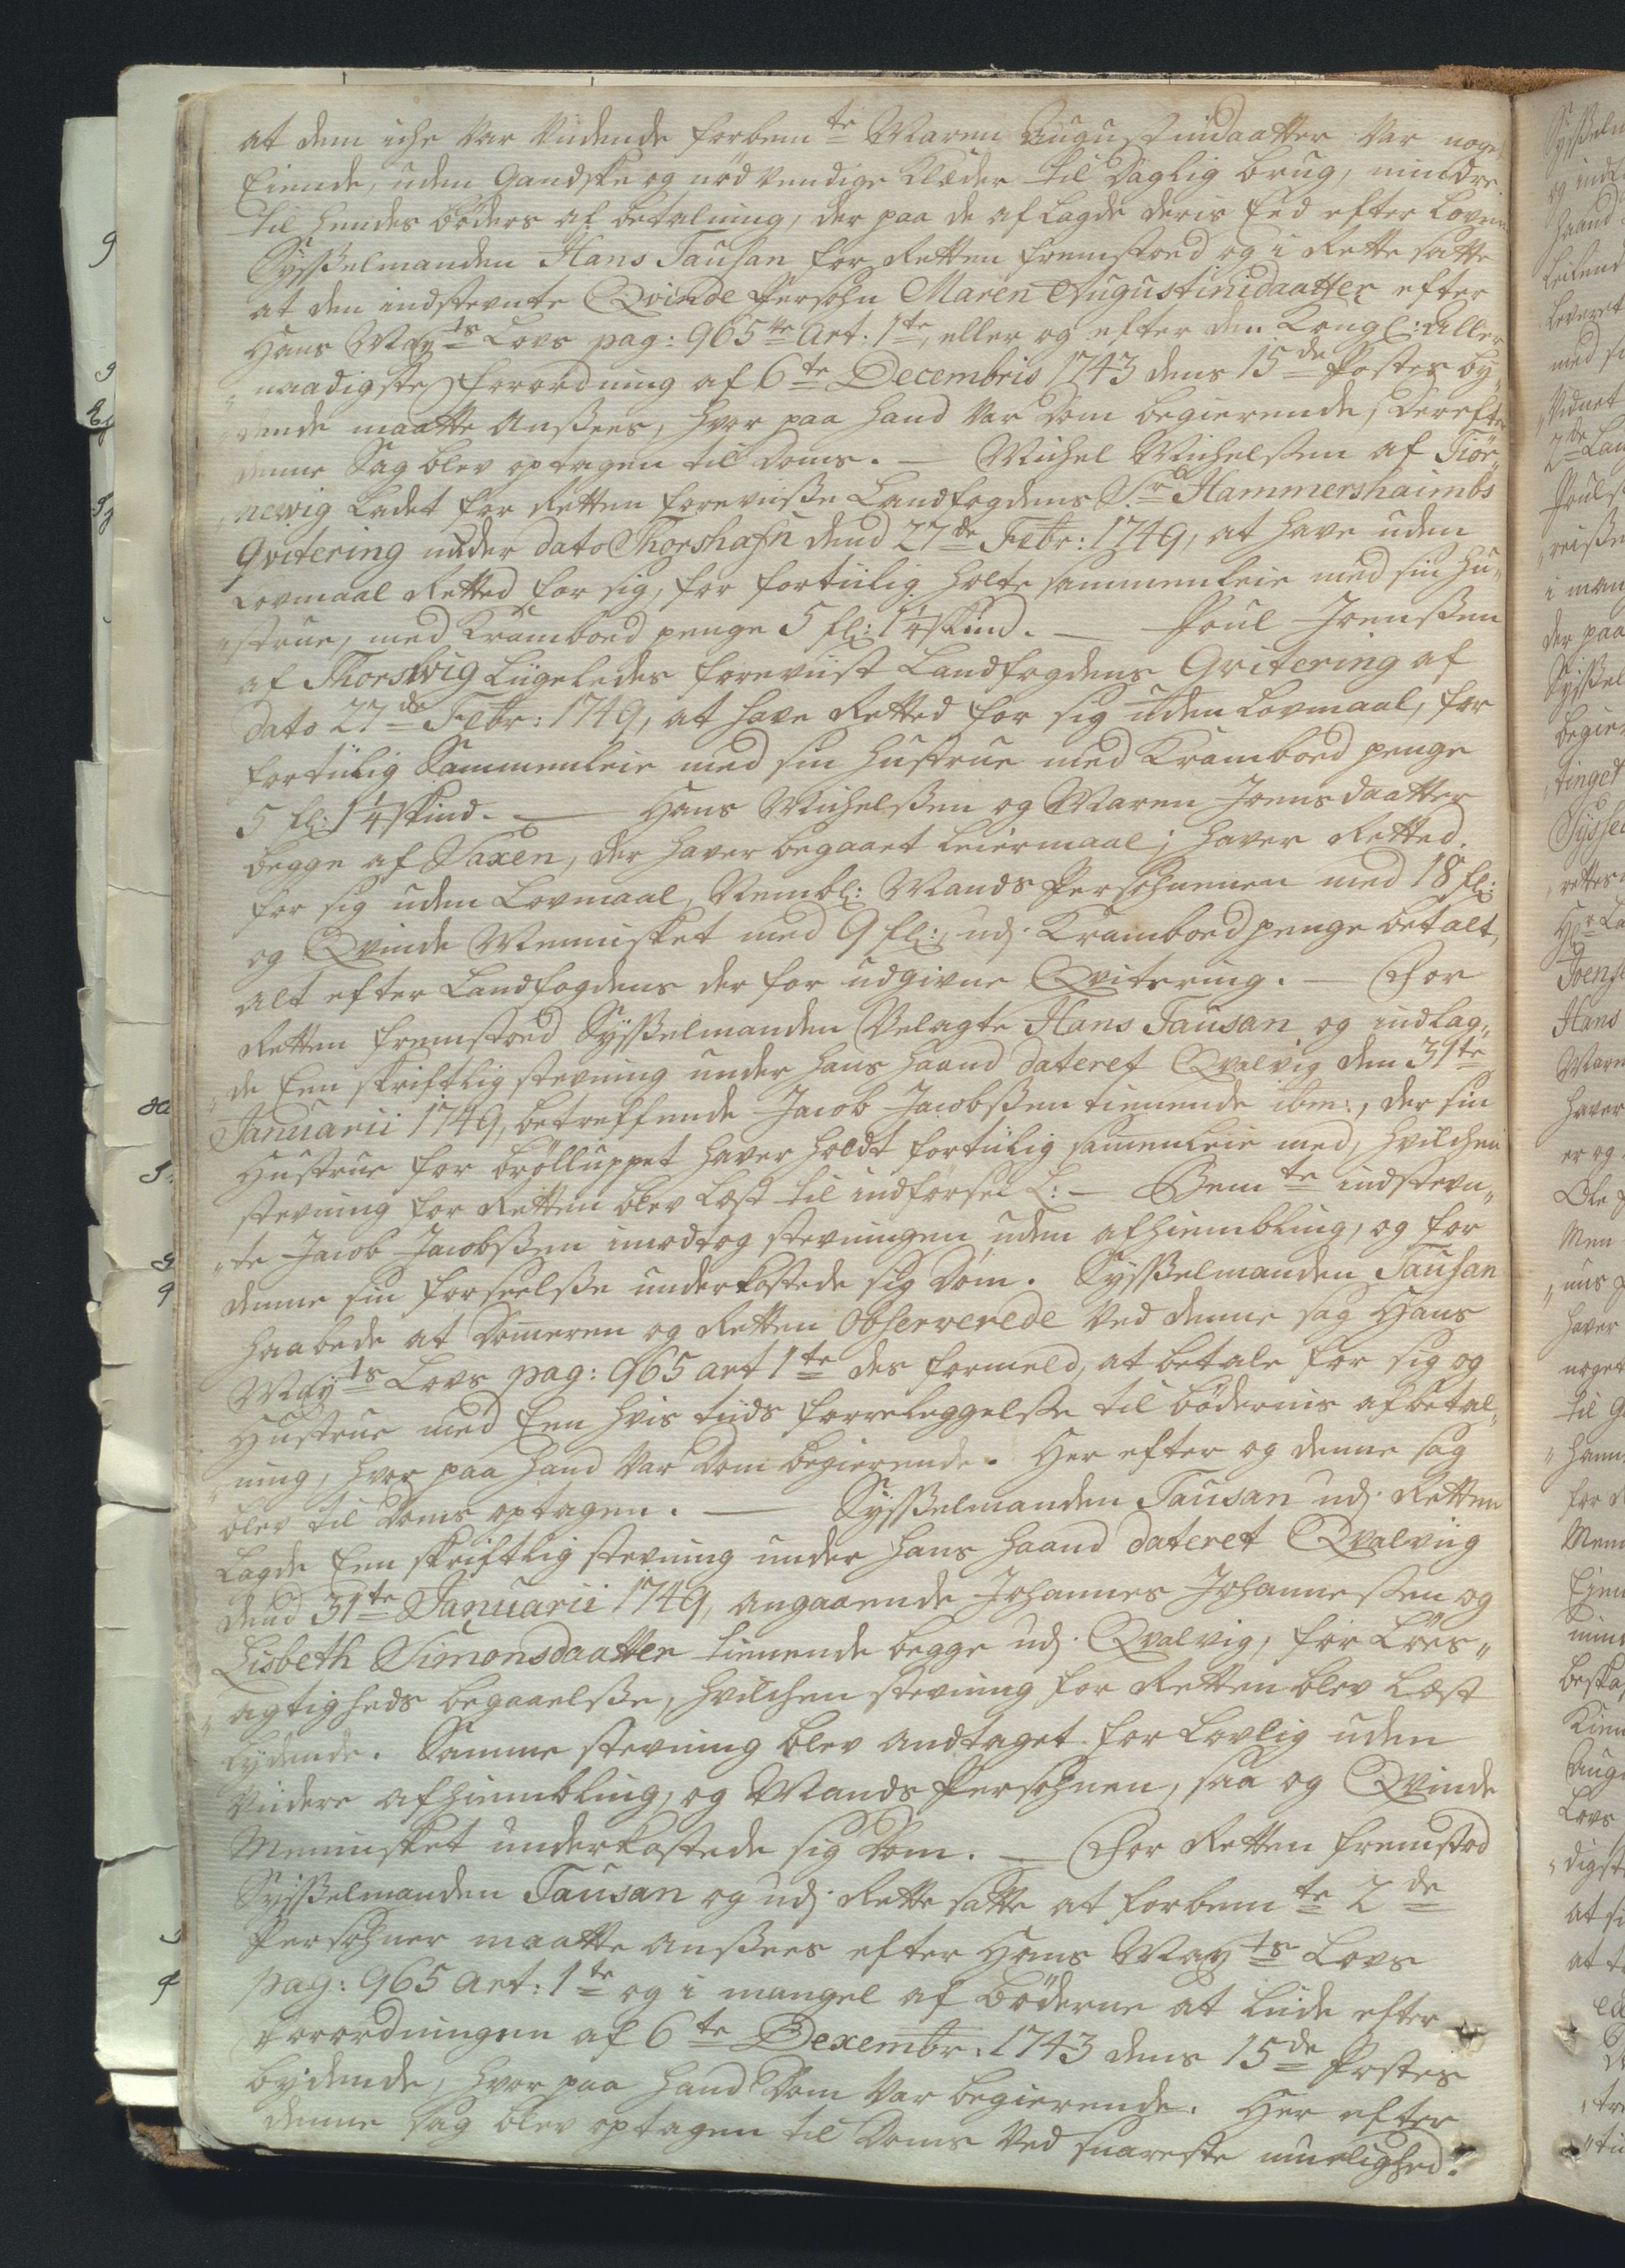 at dem iche var vidende forbemte Maren Augustinidaatter var noget
Eiende, uden Gandske og nødvendige Klæder til Daglig brug, mindre
til hendes bøders af betalning, der paa de aflagde deris Eed efter Loven
Sysselmanden Hans Tausan for Retten fremstoed og i Rette satte
at den indstevnte Qvinde Persohn Maren Augustinidaatter efter
Hans Mayts Lovs pag: 965te Art: 1te, eller og efter den Kongl: Aller
„naadigste forordning af 6te Decembris 1743 dens 15de Postes by„
„dende maatte Ansees, hvor paa hand var Dom begierende, Derefter
denne Sag blev optagen til Doms. — Michel Michelssen af Tiør„
„newig Ladet for Retten foreviisse Landfogdens Sr Hammershaimbs
Qvitering under dato Thorshafn dend 27de Febr: 1749, at have uden
Lovmaal Retted for sig, for fortiilig holte sammenleie med sin Hu„
„strue, med Kramboed penge 5 fl: 1¼ skind. — Poul Joenssen
af Thorswig Liigeledes foreviist Landfogdens Qvitering af
dato 27de Febr: 1749, at have Retted for sig uden Lovmaal, for
fortiilig Sammenleie med sin Hustrue med Kramboed penge
5 fl: 1¼ skind. — Hans Michelssen og Maren Joensdaatter
begge af Saxen, der haver begaaet Leiermaal; haver Retted
for sig uden Lovmaal, Nembl: Mands Persohnenen med 18 fl:
og Qvinde Mennisket med 9 fl:, udj Kramboed penge betalt,
alt efter Landfogdens der for udgivne Qvitering. — For
Retten fremstoed Sysselmanden Velagte Hans Tausan og indlag„
„de Een skriftlig stevning under hans haand dateret Qvalvig den 31te
Januarii 1749, betreffende Jacob Jacobssen tienende ibm:, der sin
Hustrue for brølluppet haver holdt fortiilig samenleie med, hvilchen
stevning for Retten blev Læst til indførsel L: — Bemte indstevn„
„te Jacob Jacobssen imodtog stevningen uden afhiembling, og for
denne sin forseelsse underkastede sig Dom. Sysselmanden Tausan
haabede at Domeren og Retten Observerede Ved denne sag Hans
Mayts Lovs pag: 965 art 1te des formeld, at betale for sig og
Hustrue med Een hvis tiids forreleggelsse til bødernis afbetal„
„ning, hvor paa hand var Dom begierende. Her efter og denne sag
blev til Doms optagen. — Sysselmanden Tausan udj Retten
Lagde Een skriftlig stevning under hans haand dateret Qvalviig
dend 31te Januarii 1749, angaaende Johannes Johannessen og
Lisbeth Simonsdaatter tienende begge udj Qvalvig, for Løes„
„agtigheds begaaelsse, hvilchen stevning for Retten blev Læst
Lydende. Samme stevning blev andtaget for Lovlig uden
Viidere afhiembling, og Mands Persohnen, saa og Qvinde
Mennisket underkastede sig Dom. — For Retten fremstod
Sysselmanden Tausan og udj Rette satte at forbemte 2de
Persohner maatte ansees efter Hans Mayts Lovs
pag: 965 Art: 1te og i mangel af bøderne at Liide efter
Forordningen af 6te Dexembr: 1743 dens 15de Postes
bydende, hvor paa hand Dom var begierende. Her efter
denne sag blev optagen til Doms Ved snareste muelighed.